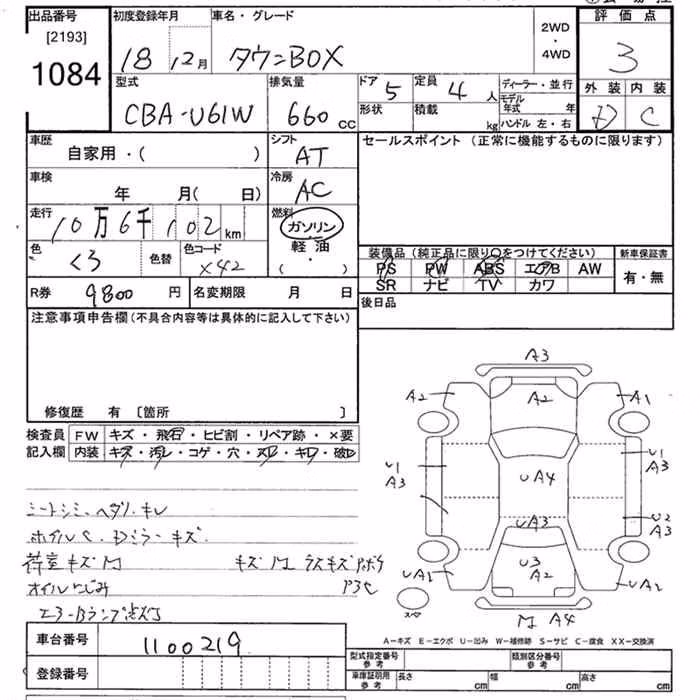 出品番号 初度登録年月 車名・グレード 2WD・4WD 評価点
[2193]
1084
18 12月 タウンBOX 3
型式 排気量 ドア 5 定員 4 人 ディーラー・並行 外装 内装
CBA-U61W 660 cc 形状 積載 kg モデル年式 年 D C
ハンドル 左・右
車歴 シフト セールスポイント (正常に機能するものに限ります)
自家用・( ) AT
車検 冷房
年 月( 日) AC
走行 燃料
10万6千102 km ガソリン
色 色替 色コード 軽油
くろ X42 ・( )
装備品 (純正品に限り○をつけてください) 新車保証書
PS PW ABS エアB AW 有・無
SR ナビ TV カワ
R券 9800 円 名変期限 月 日 後日品
注意事項申告欄 (不具合内容等は具体的に記入して下さい)
修復歴 有 [箇所 ]
検査員 FW キズ・飛石・ヒビ割・リペア跡・×要
記入欄 内装 キズ・汚レ・コゲ・穴・スレ・キレ・破レ
シートシミ、ヘタリ・キレ
ホイルC、Dミラーキズ
荷室キズM キズM ラスキズ
オイルにじみ
エアーBランプ点灯
A3
A2 A2 A1
U1 U1
A3 UA4 A3
UA3 U2
A3
U3
UA1 A2 UA2
スペ
M A4
A-キズ E-エクボ U-凹み W-補修跡 S-サビ C-腐食 XX-交換済
車台番号 1100219
型式指定番号 参考 類別区分番号 参考
登録番号 車庫証明用 参考 長さ cm 幅 cm 高さ cm